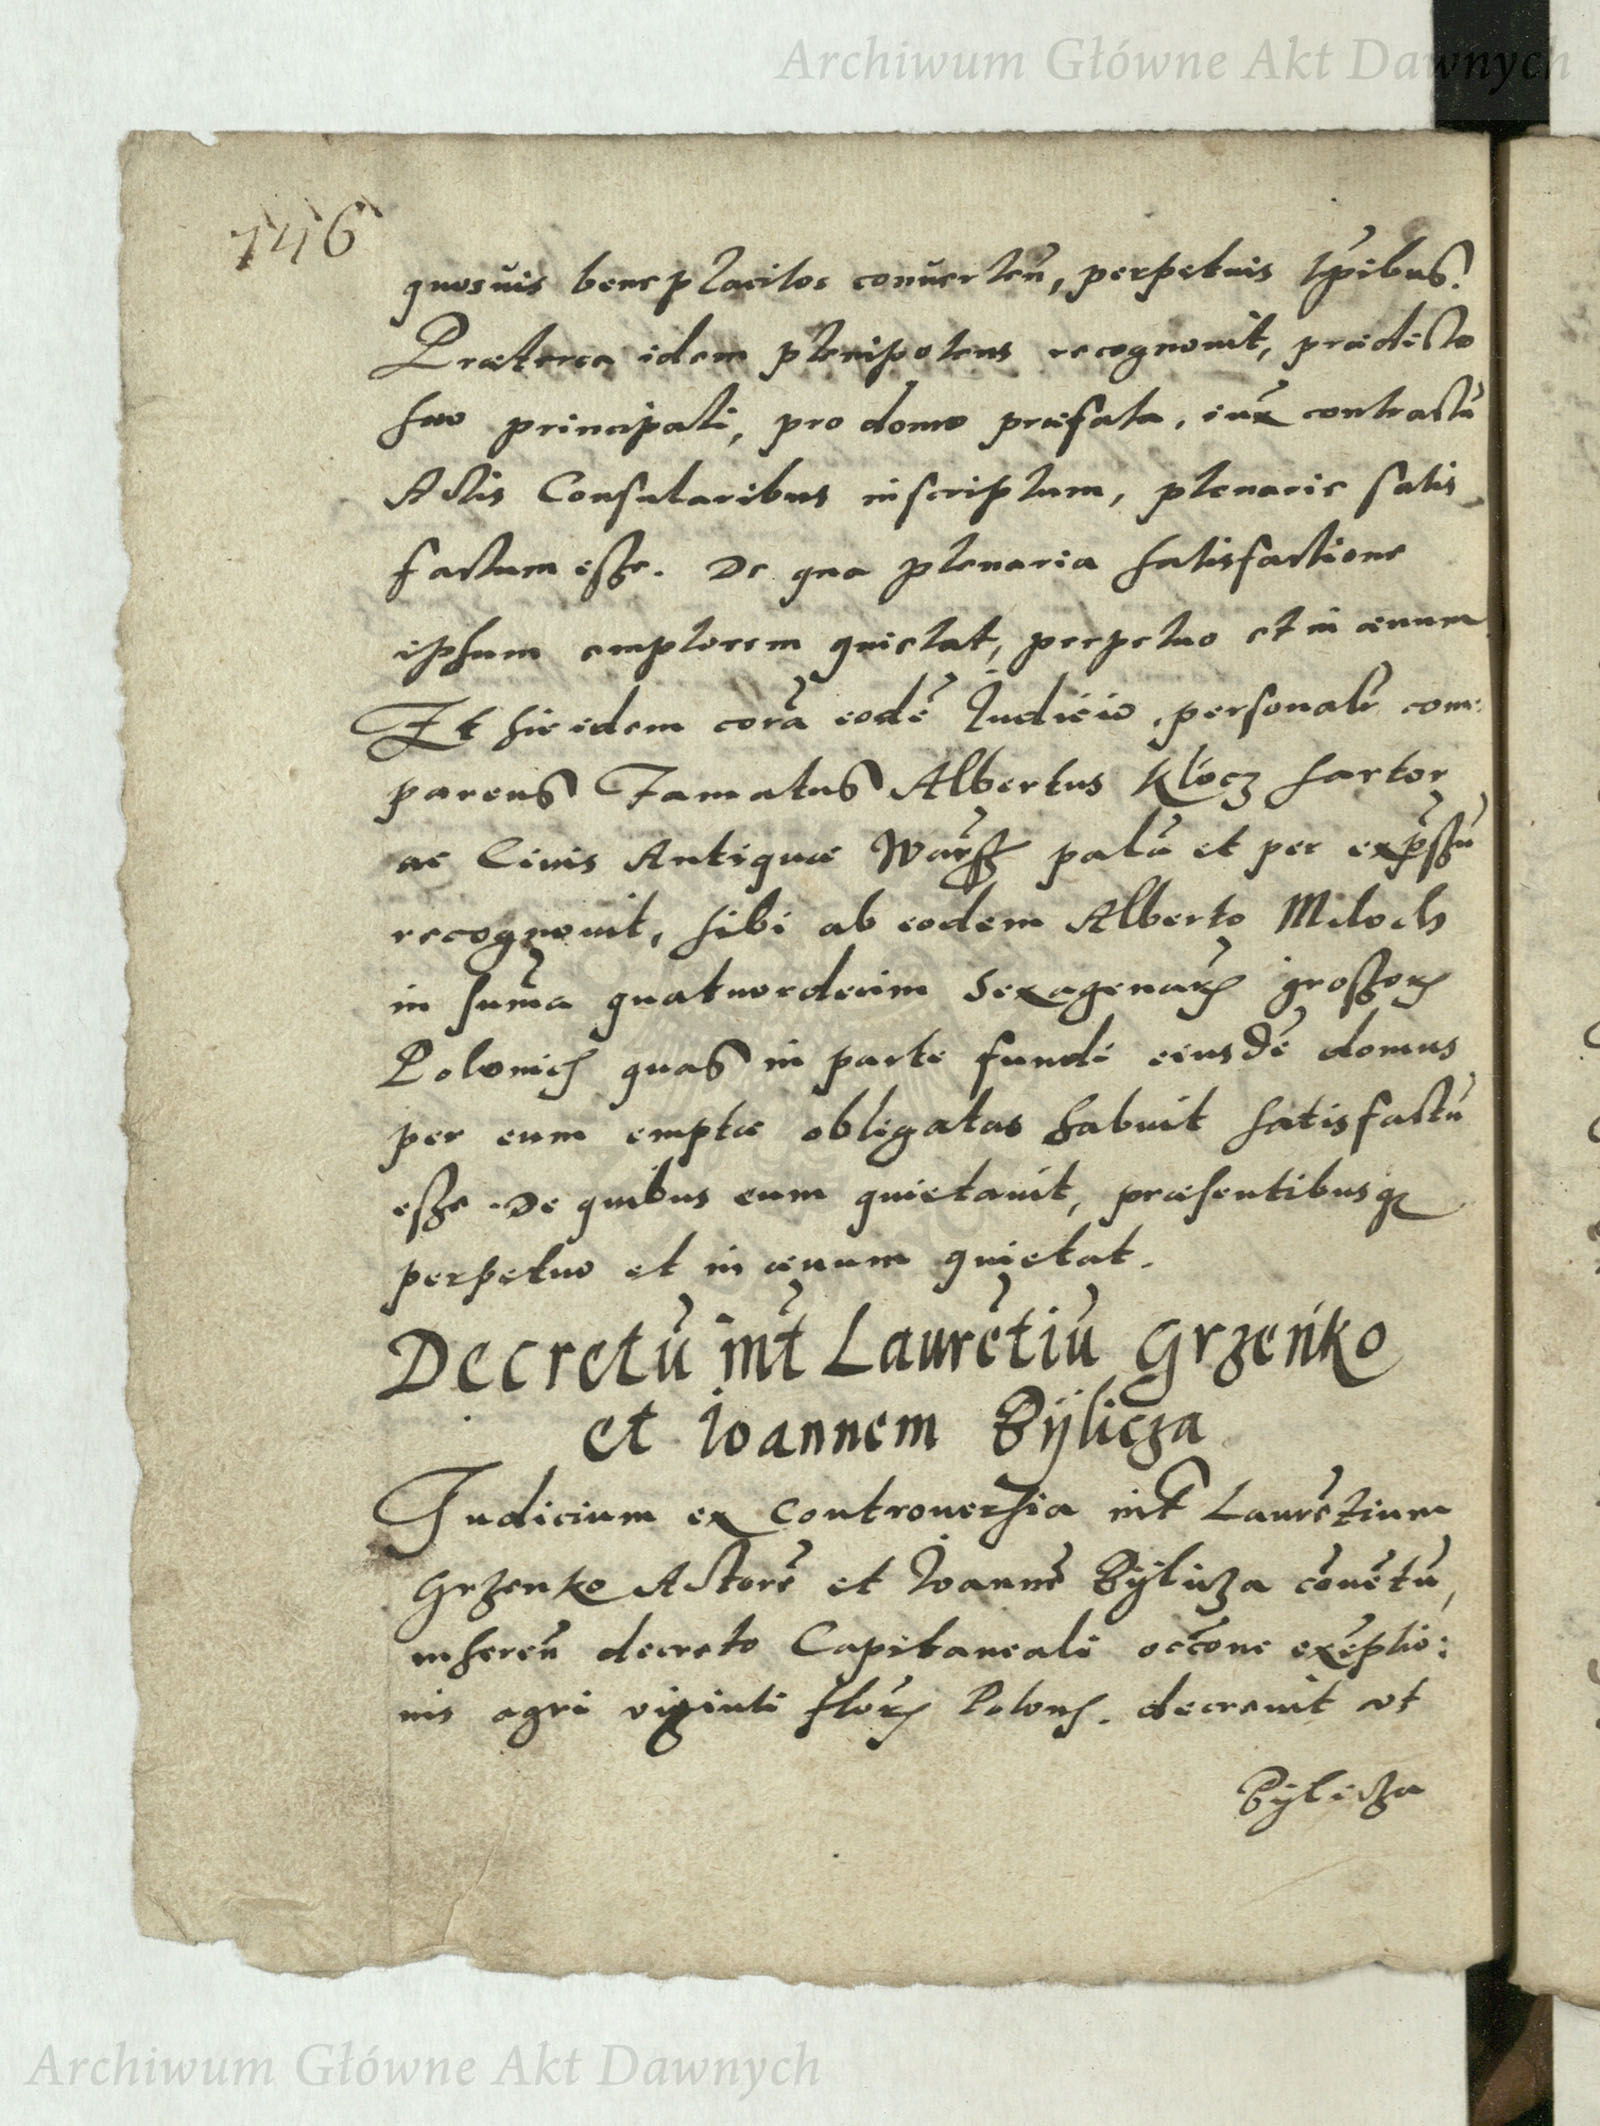 Archiwum Główne Akt Dawnych
146
quosuis beneplacitos conuerteñ, perpetuis tp̃ibus.
Præterea idem plenipotens recognouit, prædicto
suo principali, pro domo præfata, iux̃ contractũ
Actis Consularibus inscriptum, plenarie satis
factum esse. De qua plenaria satisfactione
ipsum emptorem quietat, perpetuo et in æuum
Et hic idem corã eodẽ Iudicio, personalr̃ com:
parens Famatus Albertus Klocz sartor
ac Ciuis Antiquæ Warss̃ palã et per exp̃ssũ
recognouit, sibi ab eodem Alberto Miloch
in sum̃a quatuordecim sexagenar̃ grossor̃
Polonic̃ quas in parte fundi eiusdẽ domus
per eum emptæ obligatas habuit satisfactũ
esse. De quibus eum quietauit, præsentibusq̃
perpetuo et in æuum quietat.
Decretũ int̃ Laurẽtiũ Grzeńko
et Ioannem Bÿlicza
Iudicium ex Controuersia int̃ Laurẽtium
Grzenko Actorẽ et Ioannẽ Bÿlicza cõuẽtũ,
inhereñ decreto Capitaneali occõne exẽptio:
nis agri viginti flor̃ Poloñ. decreuit vt
Bÿlicza
Archiwum Główne Akt Dawnych